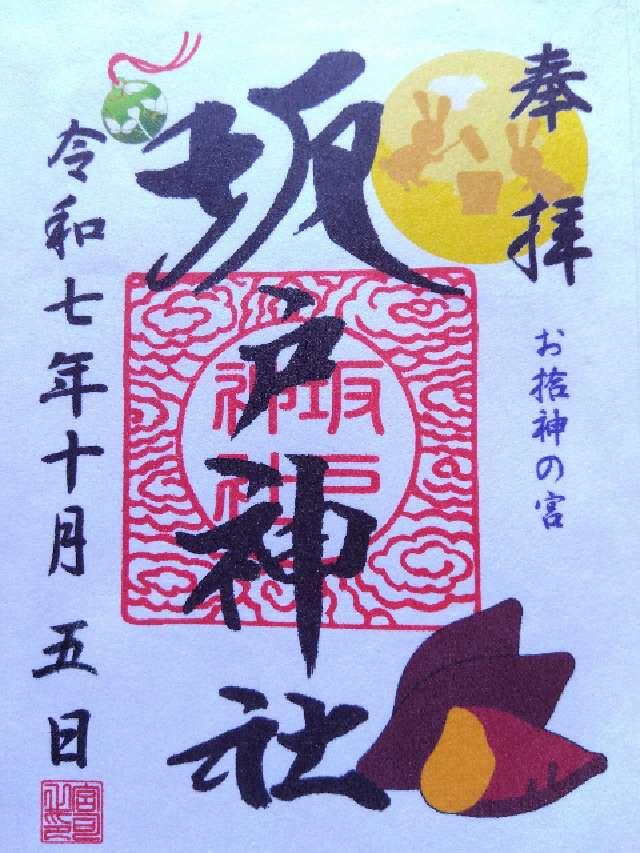 奉拝
お捨神の宮
坂戸神社
坂戸神社
令和七年十月五日